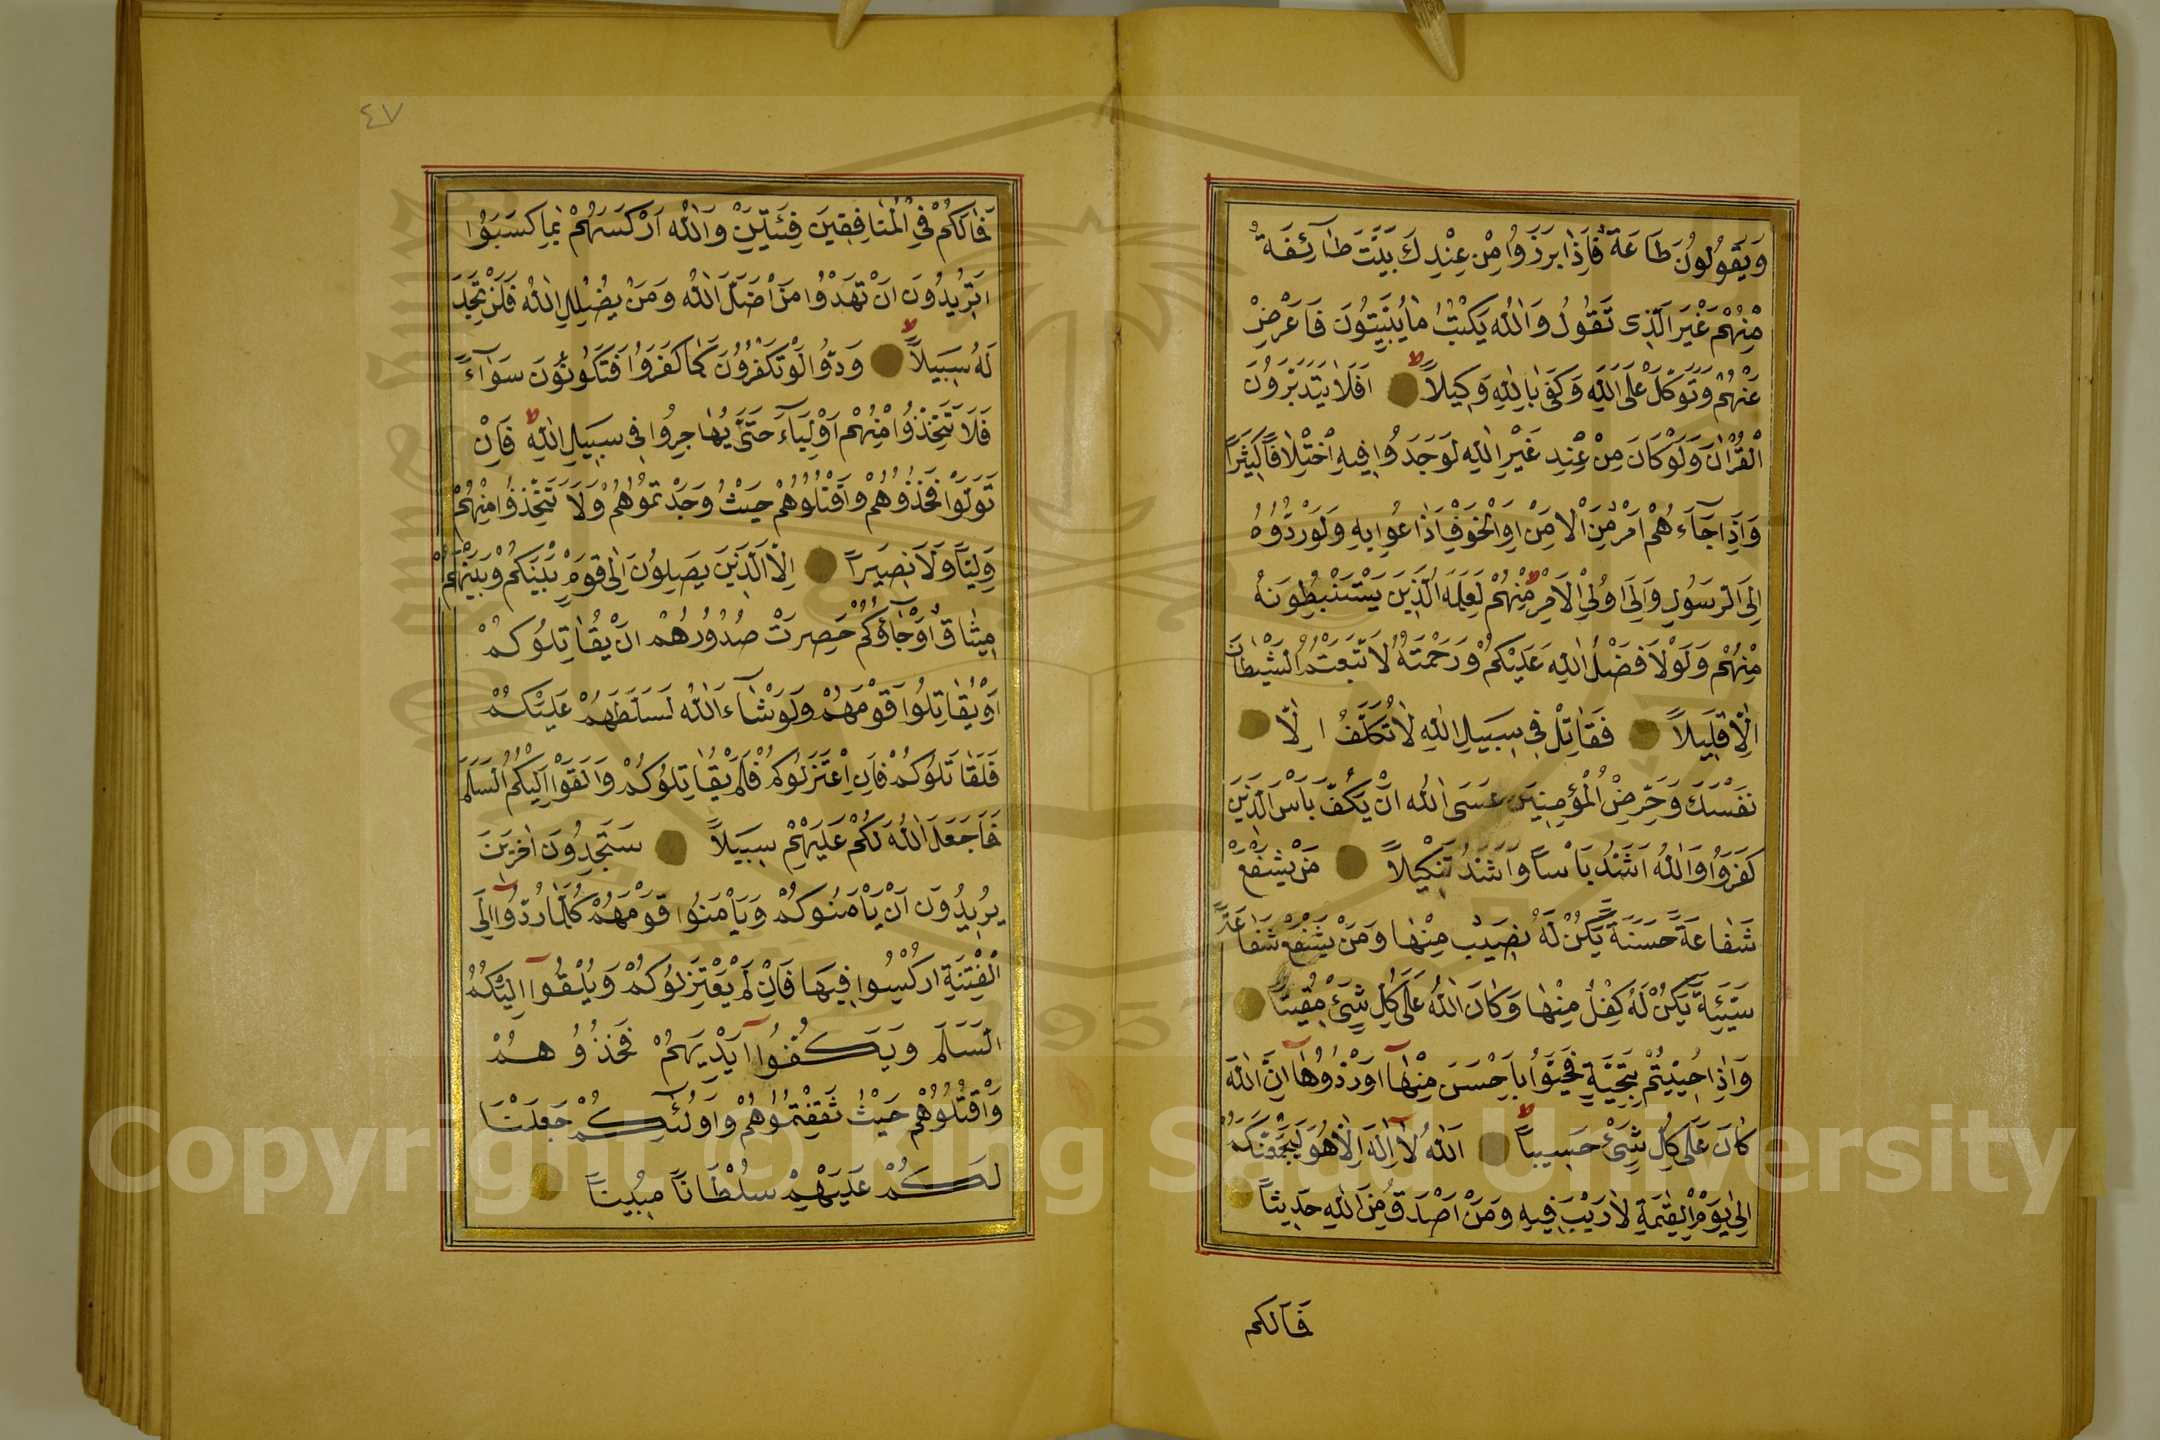 وَيَقُولُونَ طَاعَةٌ فَإِذَا بَرَزُوا مِنْ عِنْدِكَ بَيَّتَ طَآئِفَةٌ
مِنْهُمْ غَيْرَ الَّذِى تَقُولُ وَاللّٰهُ يَكْتُبُ مَا يُبَيِّتُونَ فَاَعْرِضْ
عَنْهُمْ وَتَوَكَّلْ عَلَى اللّٰهِ وَكَفٰى بِاللّٰهِ وَكِيلاً اَفَلَا يَتَدَبَّرُونَ
الْقُرْاٰنَ وَلَوْ كَانَ مِنْ عِنْدِ غَيْرِ اللّٰهِ لَوَجَدُوا فِيهِ اخْتِلَافًا كَثِيرًا
وَاِذَا جَآءَهُمْ اَمْرٌ مِنَ الْاَمْنِ اَوِ الْخَوْفِ اَذَاعُوا بِهِ وَلَوْ رَدُّوهُ
اِلَى الرَّسُولِ وَاِلٰى اُولِى الْاَمْرِ مِنْهُمْ لَعَلِمَهُ الَّذِينَ يَسْتَنْبِطُونَهُ
مِنْهُمْ وَلَوْلَا فَضْلُ اللّٰهِ عَلَيْكُمْ وَرَحْمَتُهُ لَاتَّبَعْتُمُ الشَّيْطَانَ
اِلَّا قَلِيلاً فَقَاتِلْ فِى سَبِيلِ اللّٰهِ لَا تُكَلَّفُ اِلَّا
نَفْسَكَ وَحَرِّضِ الْمُؤْمِنِينَ عَسَى اللّٰهُ اَنْ يَكُفَّ بَاْسَ الَّذِينَ
كَفَرُوا وَاللّٰهُ اَشَدُّ بَاْسًا وَاَشَدُّ تَنْكِيلاً مَنْ يَشْفَعْ
شَفَاعَةً حَسَنَةً يَكُنْ لَهُ نَصِيبٌ مِنْهَا وَمَنْ يَشْفَعْ شَفَاعَةً
سَيِّئَةً يَكُنْ لَهُ كِفْلٌ مِنْهَا وَكَانَ اللّٰهُ عَلٰى كُلِّ شَىْءٍ مُقِيتًا
وَاِذَا حُيِّيتُمْ بِتَحِيَّةٍ فَحَيُّوا بِاَحْسَنَ مِنْهَا اَوْ رُدُّوهَا اِنَّ اللّٰهَ
كَانَ عَلٰى كُلِّ شَىْءٍ حَسِيبًا اَللّٰهُ لَا اِلٰهَ اِلَّا هُوَ لَيَجْمَعَنَّكُمْ
اِلٰى يَوْمِ الْقِيٰمَةِ لَا رَيْبَ فِيهِ وَمَنْ اَصْدَقُ مِنَ اللّٰهِ حَدِيثًا
فَمَالَكُم
٤٧
فَمَالَكُمْ فِى الْمُنَافِقِينَ فِئَتَيْنِ وَاللّٰهُ اَرْكَسَهُمْ بِمَا كَسَبُوا
اَتُرِيدُونَ اَنْ تَهْدُوا مَنْ اَضَلَّ اللّٰهُ وَمَنْ يُضْلِلِ اللّٰهُ فَلَنْ تَجِدَ
لَهُ سَبِيلاً وَدُّوا لَوْ تَكْفُرُونَ كَمَا كَفَرُوا فَتَكُونُونَ سَوَآءً
فَلَا تَتَّخِذُوا مِنْهُمْ اَوْلِيَآءَ حَتّٰى يُهَاجِرُوا فِى سَبِيلِ اللّٰهِ فَاِنْ
تَوَلَّوْا فَخُذُوهُمْ وَاقْتُلُوهُمْ حَيْثُ وَجَدْتُمُوهُمْ وَلَا تَتَّخِذُوا مِنْهُمْ
وَلِيًّا وَلَا نَصِيرًا اِلَّا الَّذِينَ يَصِلُونَ اِلٰى قَوْمٍ بَيْنَكُمْ وَبَيْنَهُمْ
مِيثَاقٌ اَوْ جَآؤُكُمْ حَصِرَتْ صُدُورُهُمْ اَنْ يُقَاتِلُوكُمْ
اَوْ يُقَاتِلُوا قَوْمَهُمْ وَلَوْ شَآءَ اللّٰهُ لَسَلَّطَهُمْ عَلَيْكُمْ
فَلَقَاتَلُوكُمْ فَاِنِ اعْتَزَلُوكُمْ فَلَمْ يُقَاتِلُوكُمْ وَاَلْقَوْا اِلَيْكُمُ السَّلَمَ
فَمَا جَعَلَ اللّٰهُ لَكُمْ عَلَيْهِمْ سَبِيلاً سَتَجِدُونَ اٰخَرِينَ
يُرِيدُونَ اَنْ يَاْمَنُوكُمْ وَيَاْمَنُوا قَوْمَهُمْ كُلَّمَا رُدُّوا اِلَى
الْفِتْنَةِ اُرْكِسُوا فِيهَا فَاِنْ لَمْ يَعْتَزِلُوكُمْ وَيُلْقُوا اِلَيْكُمُ
السَّلَمَ وَيَكُفُّوا اَيْدِيَهُمْ فَخُذُوهُمْ
وَاقْتُلُوهُمْ حَيْثُ ثَقِفْتُمُوهُمْ وَاُولٰئِكُمْ جَعَلْنَا
لَكُمْ عَلَيْهِمْ سُلْطَانًا مُبِينًا
Copyright © King Saud University
1957